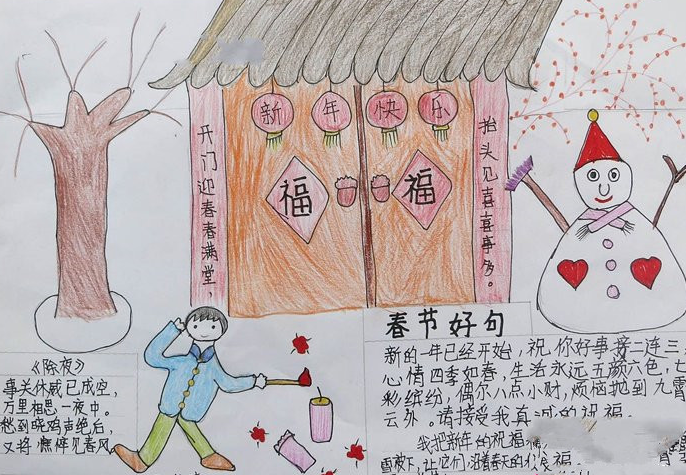 新年快乐
开门迎春春满堂
抬头见喜喜事多。
福
福
《除夜》
事关休戚已成空，
万里相思一夜中。
愁到晓鸡声绝后，
又将憔悴见春风
春节好句
新的一年已经开始，祝你好事接二连三，
心情四季如春，生活永远五颜六色，七
彩缤纷，偶尔八点小财，烦恼抛到九霄
云外。请接受我真诚的祝福。
我把新年的祝福
雪被下，让它们